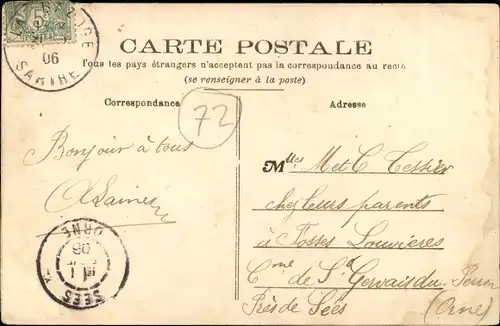 LA BAZOGE
06
SARTHE
CARTE POSTALE
Tous les pays étrangers n'acceptent pas la correspondance au recto
(se renseigner à la poste)
Correspondance
Adresse
72
Bonjour à tous
Mlles M et C Tessier
chez leurs parents
à Fosses Louvières
Cne de St Gervais du Perron
Près de Sées (Orne)
SEES
06
ORNE